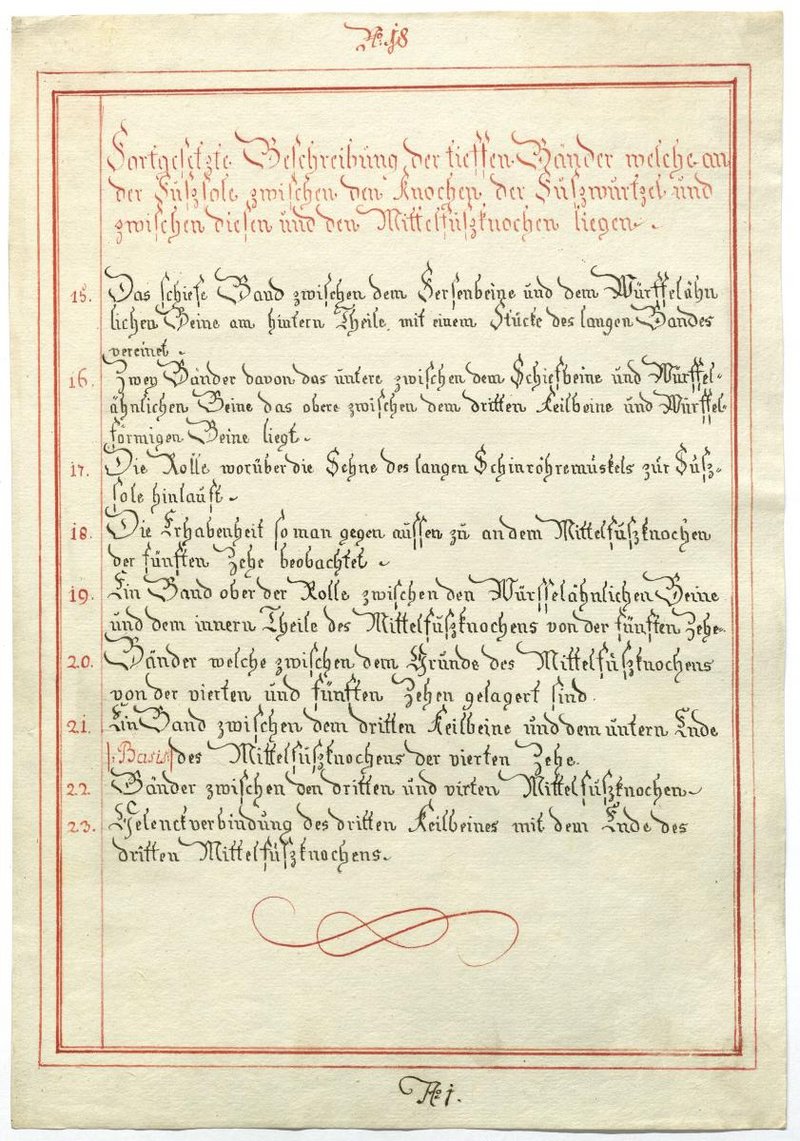 No. 18
Fortgesetzte Beschreibung der tieffen Bänder welche an
der Fußsole zwischen den Knochen der Fußwurtzel und
zwischen diesen und den Mittelfußknochen liegen.
15. Das schiefe Band zwischen dem Fersenbeine und dem Würffelähn
lichen Beine am hintern Theile, mit einem Stücke des langen Bandes
vereinet.
16. Zwey Bänder davon das untere zwischen dem Schiefbeine und Würffel-
ähnlichen Beine das obere zwischen dem dritten Keilbeine und Würffel-
förmigen Beine liegt.
17. Die Rolle worüber die Sehne des langen Schinröhremuskels zur Fuß-
sole hinlauft.
18. Die Erhabenheit so man gegen aussen zu an dem Mittelfußknochen
der fünften Zehe beobachtet.
19. Ein Band ober der Rolle zwischen den Würffelähnlichen Beine
und dem innern Theile des Mittelfußknochens von der fünften Zehe.
20. Bänder welche zwischen dem Grunde des Mittelfußknochens
von der vierten und fünften Zehen gelagert sind.
21. Ein Band zwischen dem dritten Keilbeine und dem untern Ende
|: Basis :| des Mittelfußknochens der vierten Zehe.
22. Bänder zwischen den dritten und virten Mittelfußknochen.
23. Gelenckverbindung des dritten Keilbeines mit dem Ende des
dritten Mittelfußknochens.
No 1.